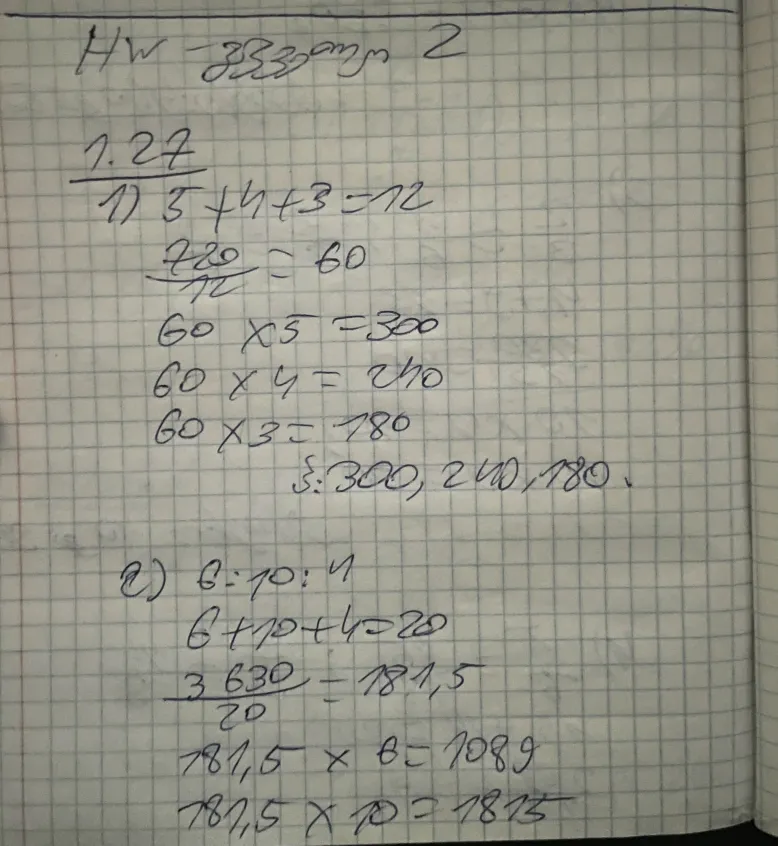 HW - 2
1.27
1) 5+4+3=12
720/12 = 60
60 x5 =300
60 x 4 = 240
60 x 3 = 180
Յ: 300, 240, 180.
2) 6:10:4
6+10+4=20
3 630/20 = 181,5
181,5 x 6= 1089
181,5 x 10 = 1815